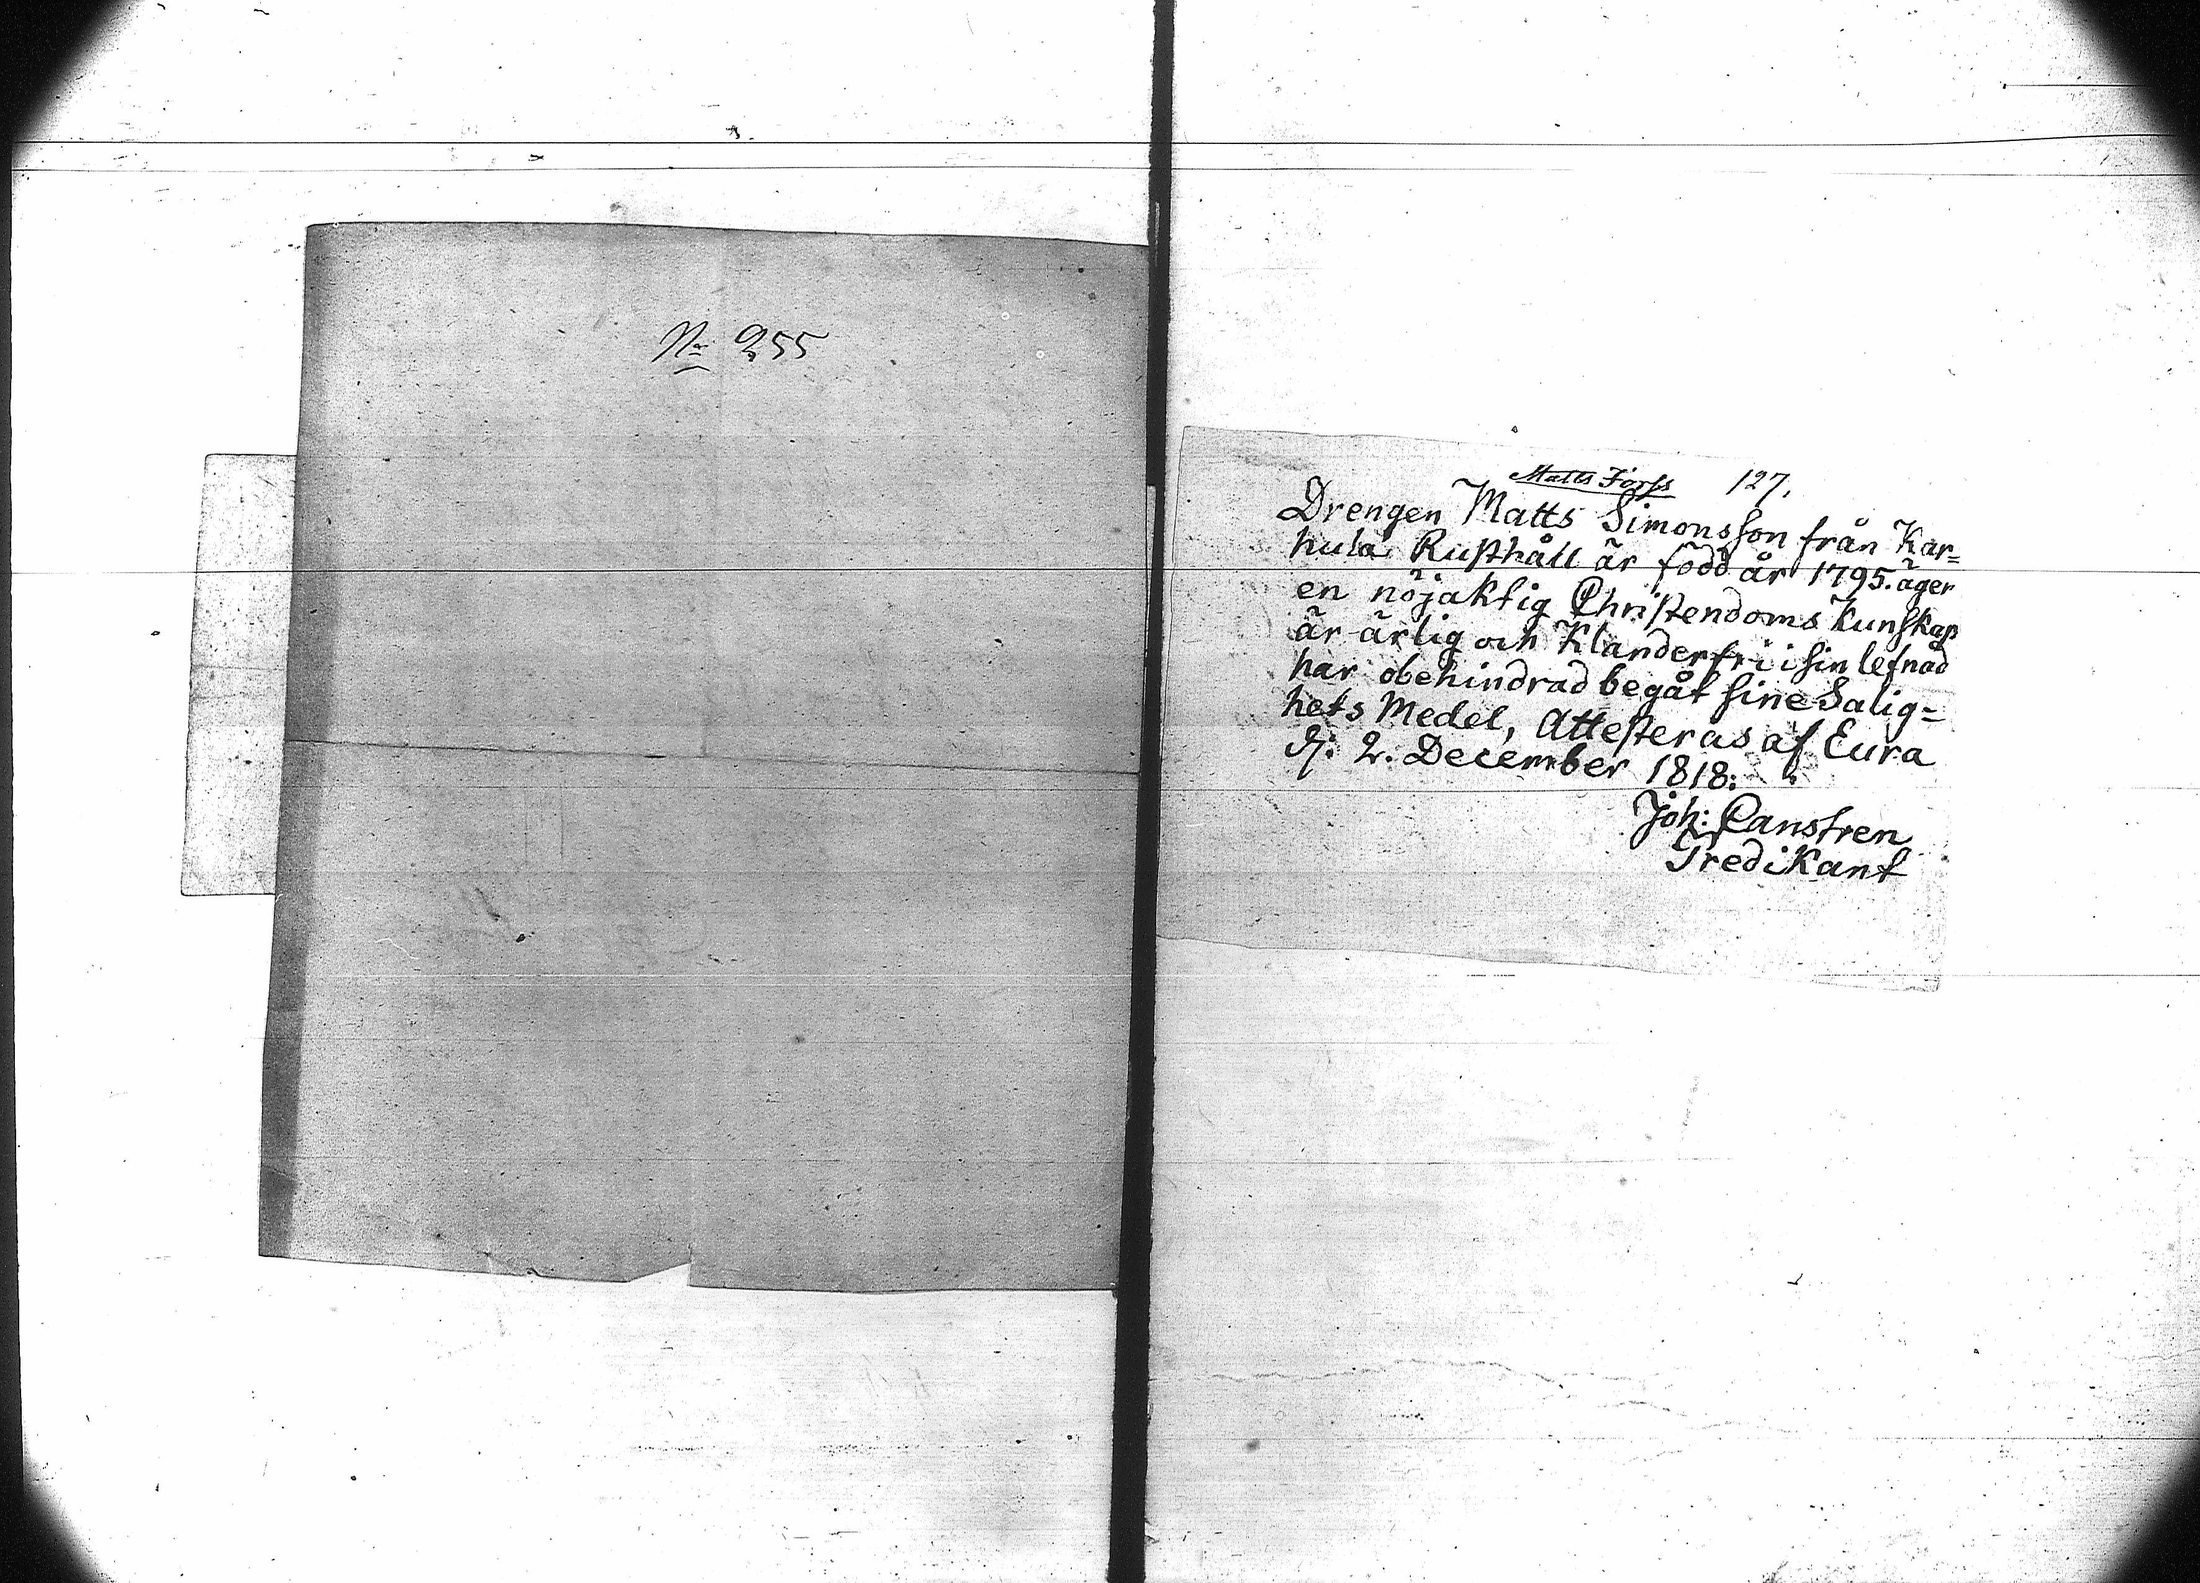 No 255
Matts Forss 127.
Drengen Matts Simonsson från Kar=
hula Rusthåll är född år 1795. äger
en nöjaktig Christendoms Kunskap
är ärlig och Klanderfri i sin lefnad
har obehindrad begåt sine Salig=
hets Medel, Attesteras af Eura
d: 2. December 1818:
Joh: Canstren
Predikant